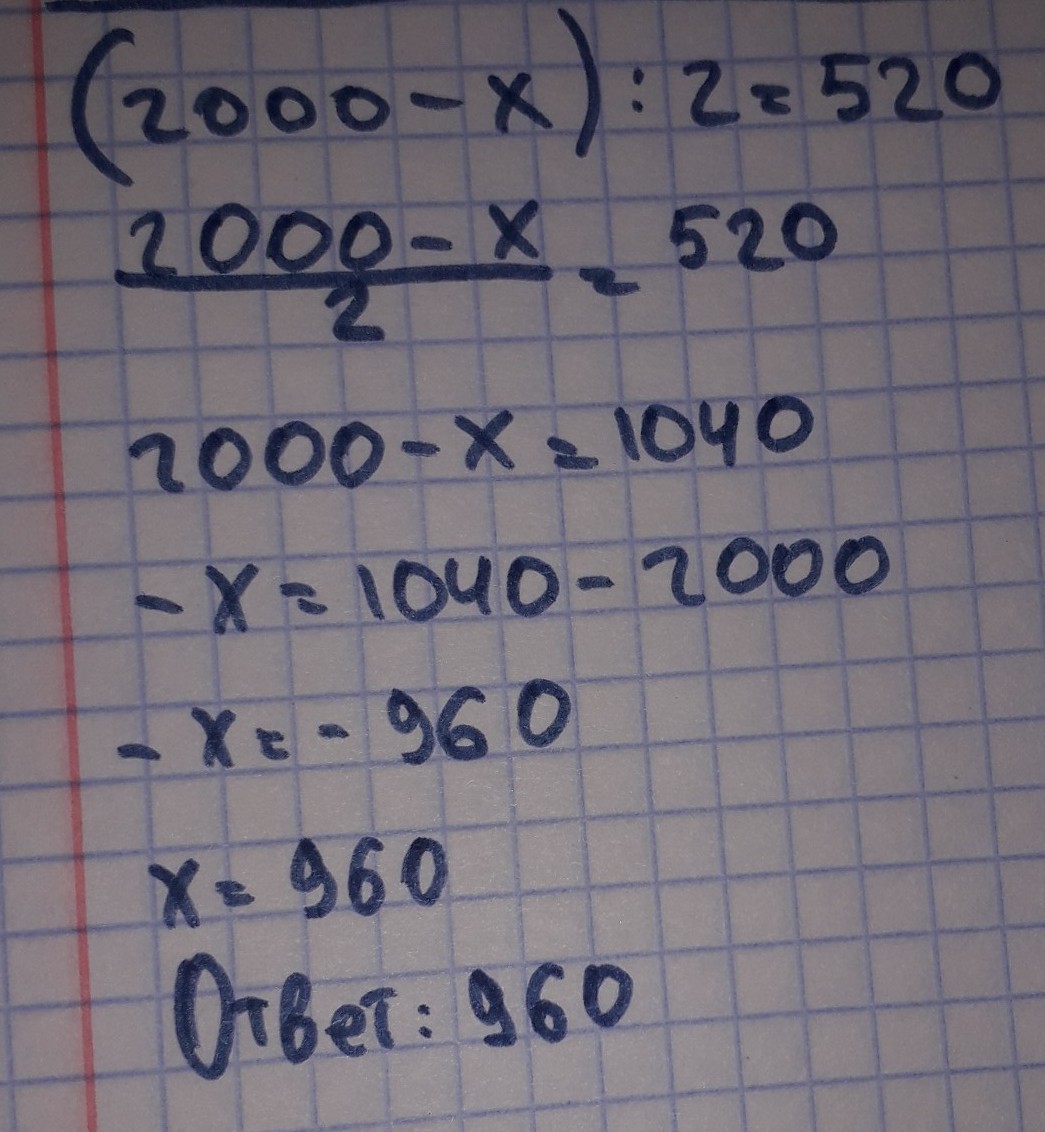 (2000 - x) : 2 = 520
2000 - x
2
= 520
2000 - x = 1040
- x = 1040 - 2000
- x = - 960
x = 960
Ответ: 960